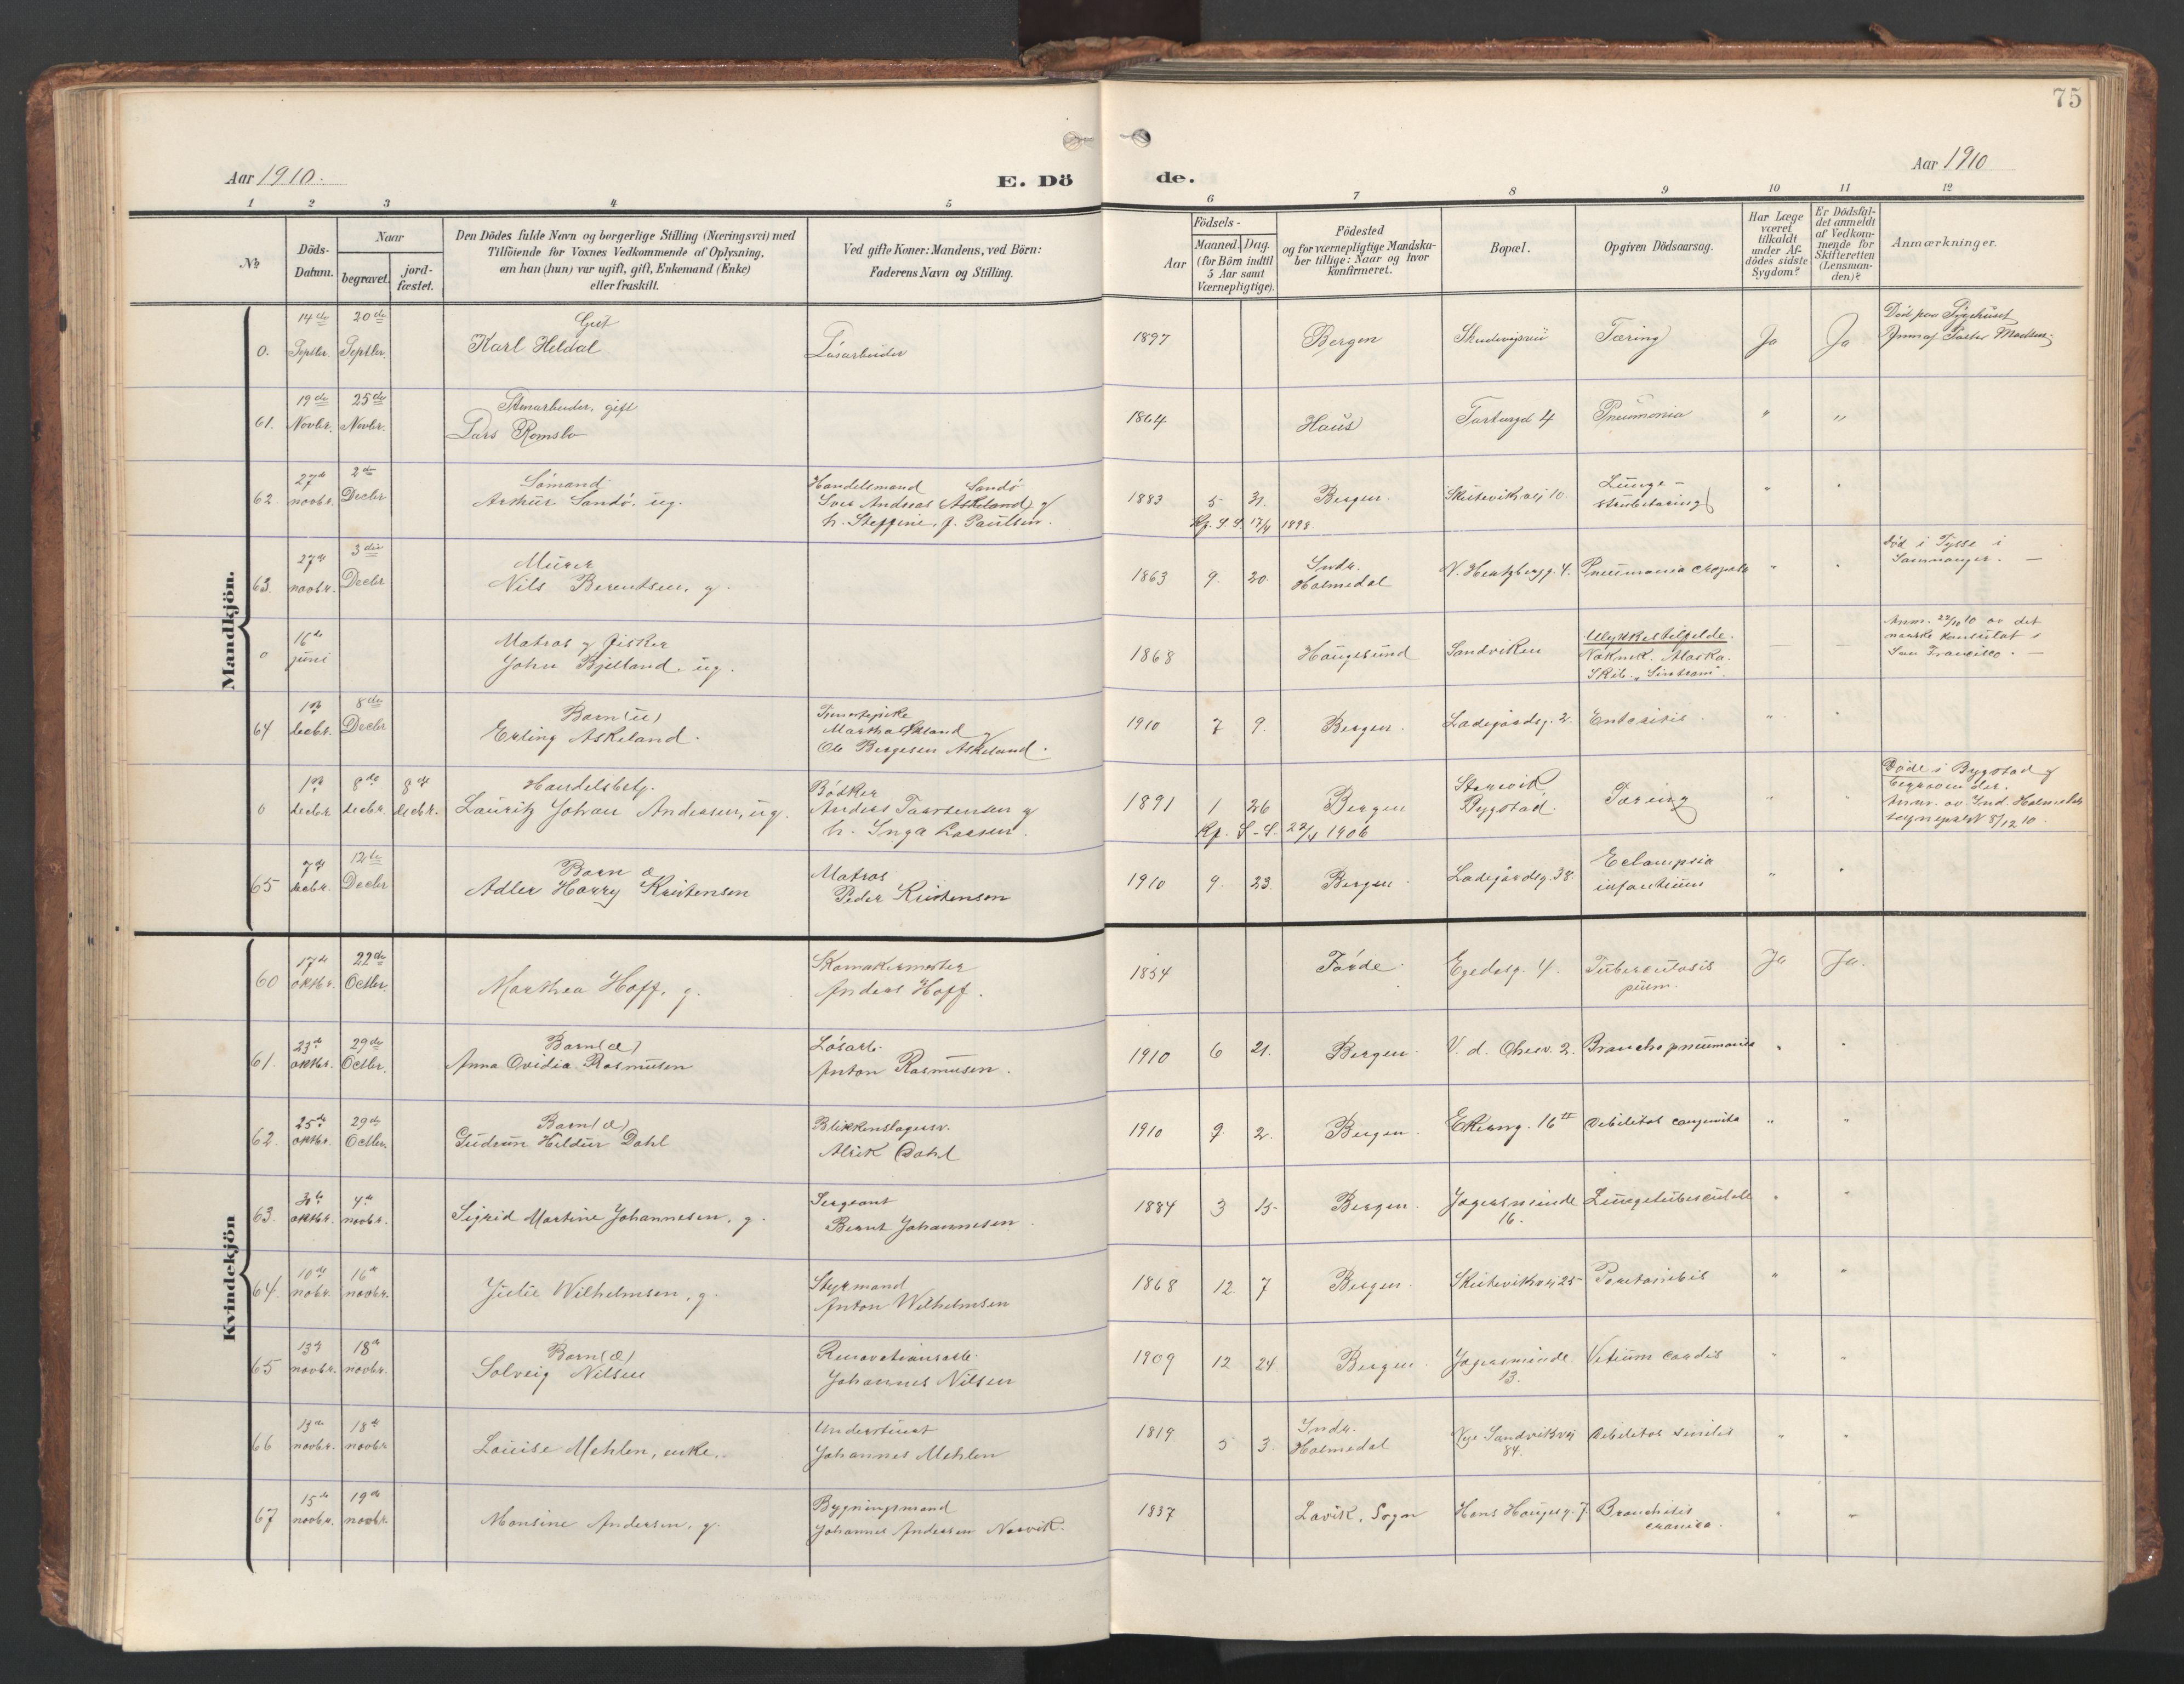 75
Aar 1910.
E. Dö
de.
Aar 1910
1 2 3 4 5 6 7 8 9 10 11 12
No
Döds-
Datum.
Naar
begravet.
jord-
fæstet.
Den Dödes fulde Navn og borgerlige Stilling (Næringsvei) med
Tilföiende for Voxnes Vedkommende af Oplysning,
om han (hun) var ugift, gift, Enkemand (Enke)
eller fraskilt.
Ved gifte Koner: Mandens, ved Börn:
Faderens Navn og Stilling.
Födsels-
Aar
Maaned. Dag.
(for Börn indtil
5 Aar samt
Værnepligtige).
Födested
og for værnepligtige Mandska-
ber tillige: Naar og hvor
konfirmeret.
Bopæl.
Opgiven Dödsaarsag.
Har Læge
været
tilkaldt
under Af-
dödes sidste
Sygdom?
Er Dödsfal-
det anmeldt
af Vedkom-
mende for
Skifteretten
(Lensman-
den)?
Anmærkninger.
Mandkjön.
0. 14de Septbr. 20de Septbr.
Gut
Karl Heldal
Løsarbeider
1897 Bergen Skudevigsvei Tæring Ja Ja
Død paa Sygehuset
61. 19de Novbr. 25de Novbr.
Stenarbeider, gift
Lars Romslo
1864 Haus Tartargd 4 Pneumonia " "
62. 27de novbr. 2de Decbr
Sømand
Arthur Sandø, ug.
Handelsmand Sandø
Andreas Askeland og
h. Steffine, f. Paulsen.
1883 5 31. Bergen. Skutevikvej 10. Lunge-
strubetæring " "
Kf. S. S. 17/4 1898.
63. 27de novbr. 3die Decbr
Murer
Nils Berentsen, g.
1863 9. 20. Indr.
Holmedal N. Hentzbergg. 4. Pneumonia "
død i Tysse i
Samnanger. —
0 16de juni
Matros og fisker
John Bjelland, ug.
1868 Haugesund Sandviken
Ulykkestilfelde.
Naknek. Alaska.
Skib. "Sintram".
Anm. 22/11 10 av det
norske konsulat i
San Francisco. —
64 1ste decbr. 8de Decbr
Barn (u)
Erling Askeland.
Tjenestepike
Martha Økland og
Ole Bergesen Askeland.
1910 7 9. Bergen. Ladegårdsg. 2. Enteritis. " "
0 1ste decbr 8de decbr. 8de decbr.
Handelsbetj.
Lauritz Johan Andersen, ug.
Bødker
Anders Torstensen og
h. Inga Larsen.
1891 1 26 Bergen Bygstad. Tæring " "
Kf. S-S. 22/4 1906
Døde i Bygstad og
anm. av Ind. Holmedals
sogneprest 8/12 10.
65 7de decbr. 12te Decbr
Barn æ
Adler Harry Kristensen
Matros
Peder Kristensen
1910 9. 23. Bergen. Ladegårdsg. 38. Eclampsia
infantium " "
Kvindekjön
60 17de oktbr. 22de Octbr.
Marthea Hoff, g.
Skomakermester
Anders Hoff.
1854 Førde. Egedesg. 4. Tuberculosis
pulm. Ja Ja.
61. 23de oktbr. 29de Octbr.
Barn (æ)
Anna Ovidia Rasmusen
Løsarb.
Anton Rasmusen.
1910 6 21. Bergen. V. d. Oheev. 2. Broncho pneumonia " "
62. 25de oktbr. 29de Octbr.
Barn (æ)
Gudrun Hildur Dahl
Blikkenslagersv.
Alrik Dahl
1910 9. 2. Bergen. Ekreng. 16 debilitas congenita " "
63. 31te oktbr. 4de novbr.
Sigrid Martine Johannesen, g.
Sergeant
Bernt Johannesen.
1884 3 15 Bergen. Jægersminde
16. " "
64. 10de nobr. 16de novbr.
Julie Wilhelmsen, g.
Styrmand
Anton Wilhelmsen
1868 12. 7 Bergen. Skutevikvej 25 Peritonitis " "
65 13de novbr. 18de novbr.
Barn (æ)
Solveig Nilsen
Renovationsarb.
Johannes Nilsen
1909 12 24 Bergen. Jægersminde.
13. Vitium cordis " "
66 13de novbr. 18de novbr.
Louise Mehlen, enke.
Understüert
Johannes Mehlen
1819 5 3. Indr.
Holmedal Nye Sandviksvej
84. debilitas senilis " "
67 15de novbr. 19de novbr.
Monsine Andersen, g.
Bygningsmand
Johannes Andersen Nesvik.
1837 Lavik, Sogn Hans Haugesg. 7. Bronchitis
cronica. " "